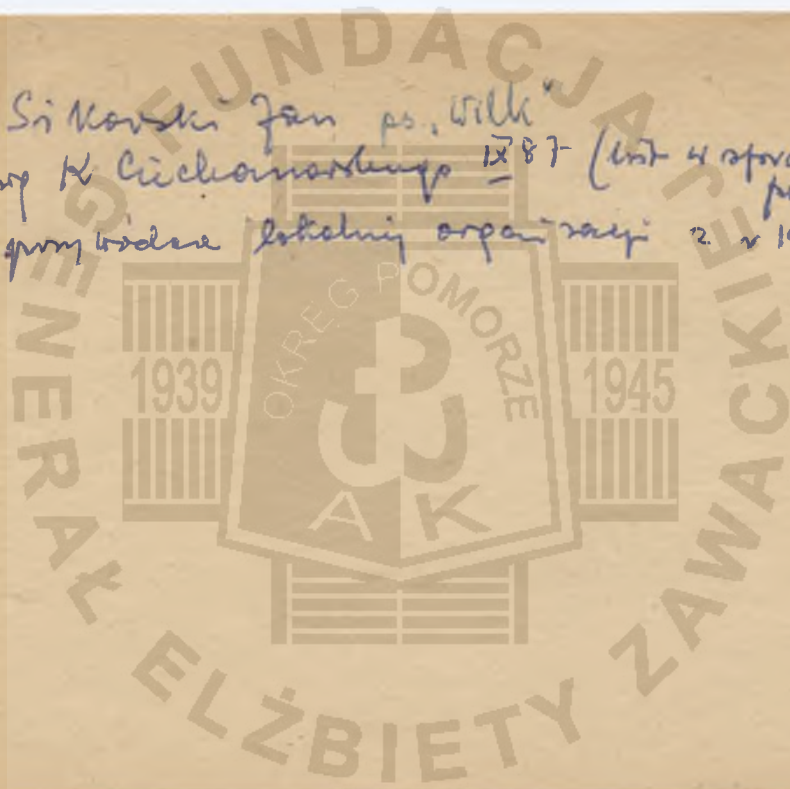 Sikorski Jan ps. „Wilk"
K Ciechanowskiego IX 87 (list w
lokalnej organizacji z
FUNDACJA
GENERAŁ ELŻBIETY ZAWACKIEJ
OKRĘG POMORZE
1939
1945
AK